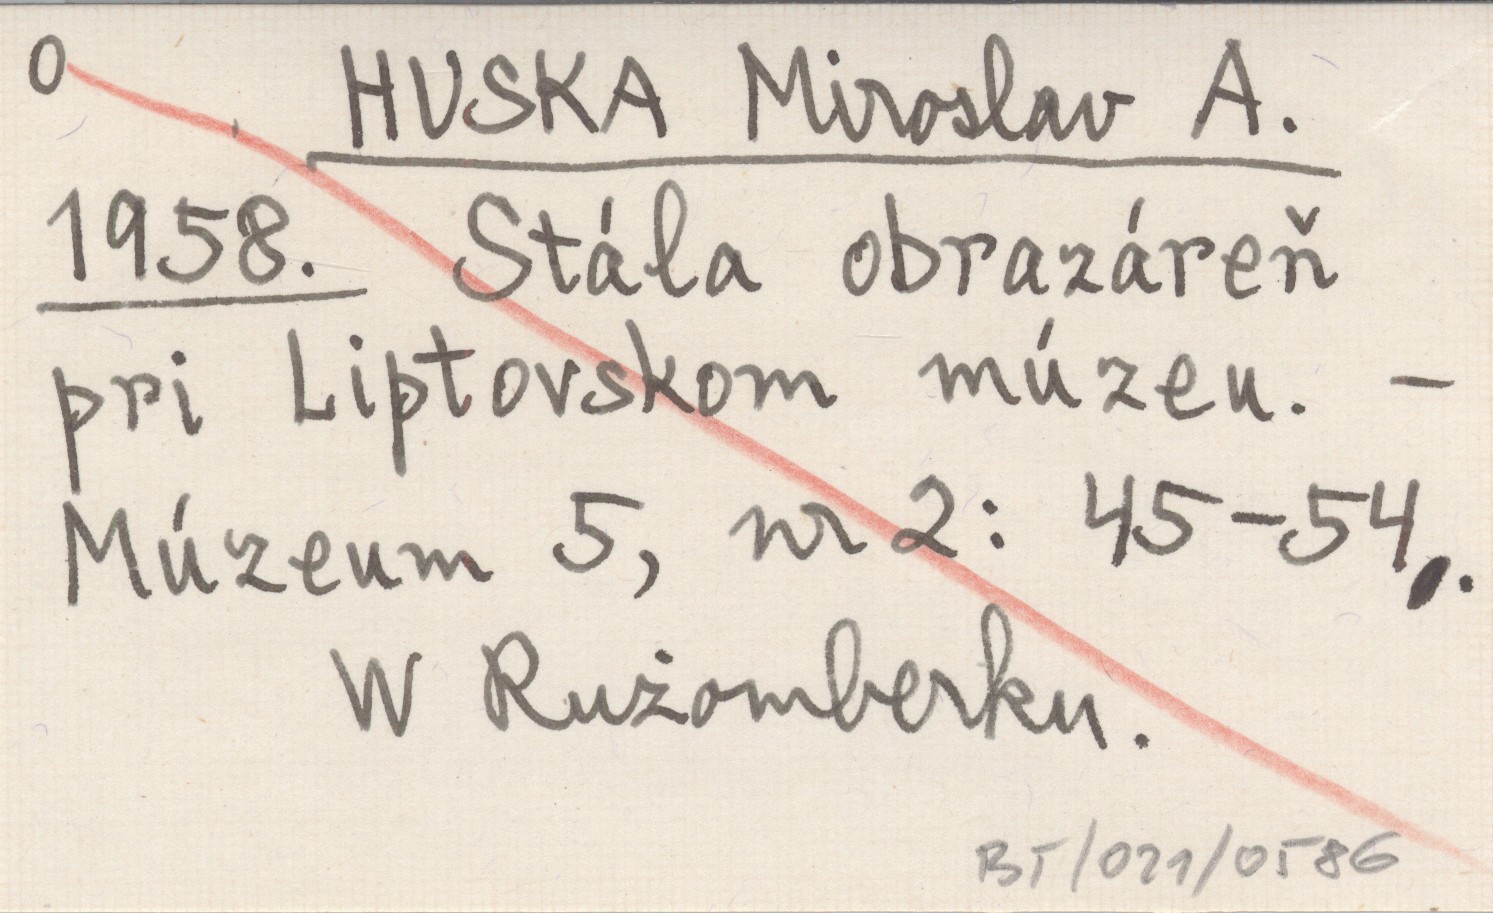 O HUSKA Miroslav A.
1958. Stála obrazáreň
pri Liptovskom múzeu. –
Múzeum 5, nr 2: 45–54,.
W Rużomberku.
BT/021/0586